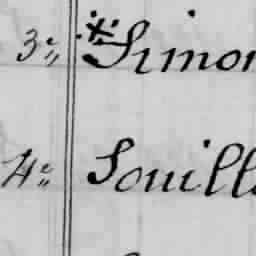 3° Simon
4° Souill